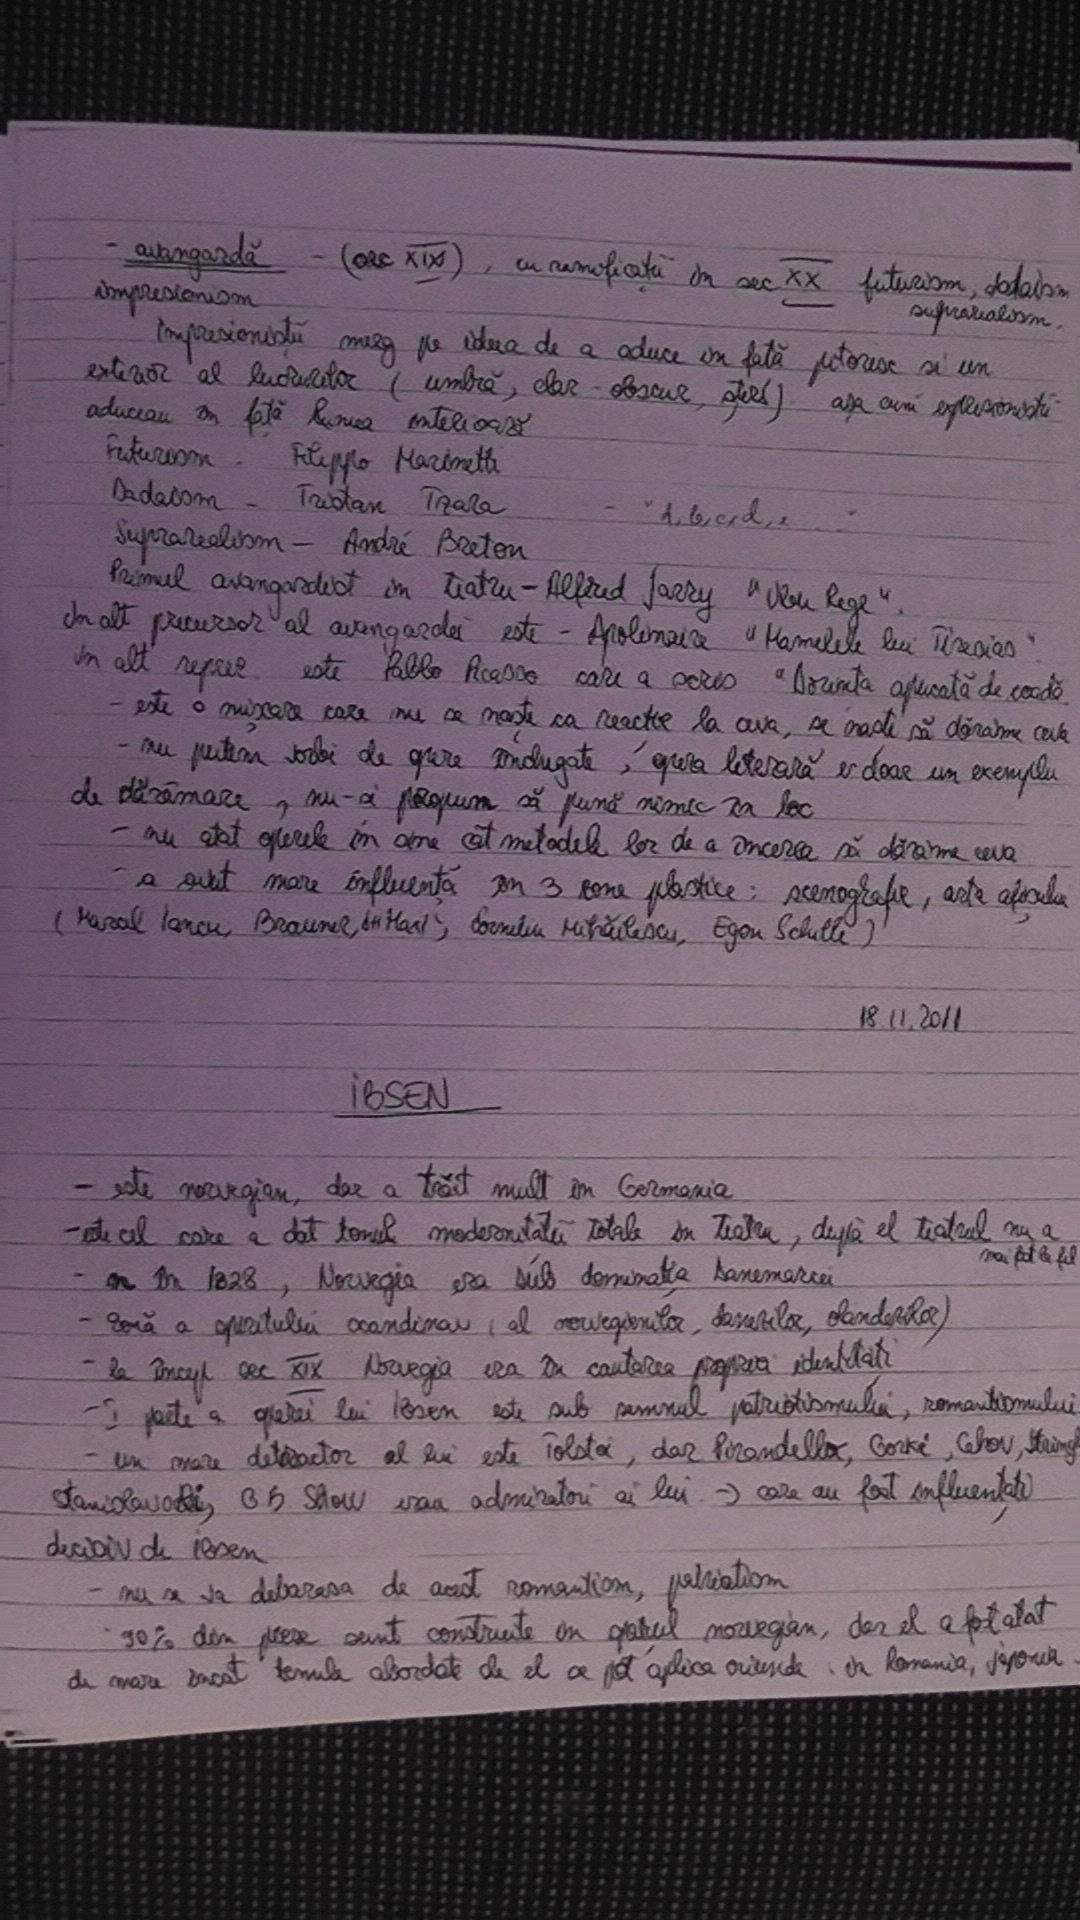 - avangardă - (sec XIX), cu ramificații în sec XX futurism, dadaism
suprarealism.
impresionism
Impresioniștii merg pe ideea de a aduce în față pitoresc si un
exterior al lucrurilor (umbră, clar-obscur, șters) așa cum expresioniștii
aduceau în față lumea interioară
Futurism - Filippo Marinetti
Dadaism - Tristan Tzara - "A, b, c, d, e "
Suprarealism - André Breton
Primul avangardist in teatru - Alfred Jarry "Ubu Rege".
Un alt precursor al avangardei este - Apolinaire "Mamelele lui Tiresias"
Un alt reprez. este Pablo Picasso care a scris "Dorința apucată de coadă.
- este o mișcare care nu se naște ca reacție la ceva, se naște să dărâme ceva
- nu putem vorbi de opere îndrugate, opera literară e doar un exemplu
de dărâmare, nu-și propun să pună nimic în loc
- nu atat operele în sine cât metodele lor de a încerca să dărâme ceva
- a avut mare influență în 3 zone plastice: scenografie, arta afișului
(Marcel Iancu, Brauner, Corneliu Mihăilescu, Egon Schiele)
18.11.2011
IBSEN
- este norvegian, dar a trăit mult în Germania
- este cel care a dat tonul modernității totale în teatru, după el teatrul nu a
mai fost la fel
- în 1828, Norvegia era sub dominația Danemarcei
- zonă a spiritului scandinav (al norvegienilor, danezilor, olandezilor)
- la încep sec XIX Norvegia era în cautarea propriei identități
- I parte a operei lui Ibsen este sub semnul patriotismului, romantismului
- un mare detractor al lui este Tolstoi, dar Pirandello, Gorki, Cehov, Strind
Stanislavski, G B Show erau admiratori ai lui. → care au fost influențați
decisiv de Ibsen
- nu se va debarasa de acest romantism, patriotism
- 90% din piese sunt construite în spațiul norvegian, dar el a fost atat
de mare încat temele abordate de el se pot aplica oriunde: in Romania, japonia.